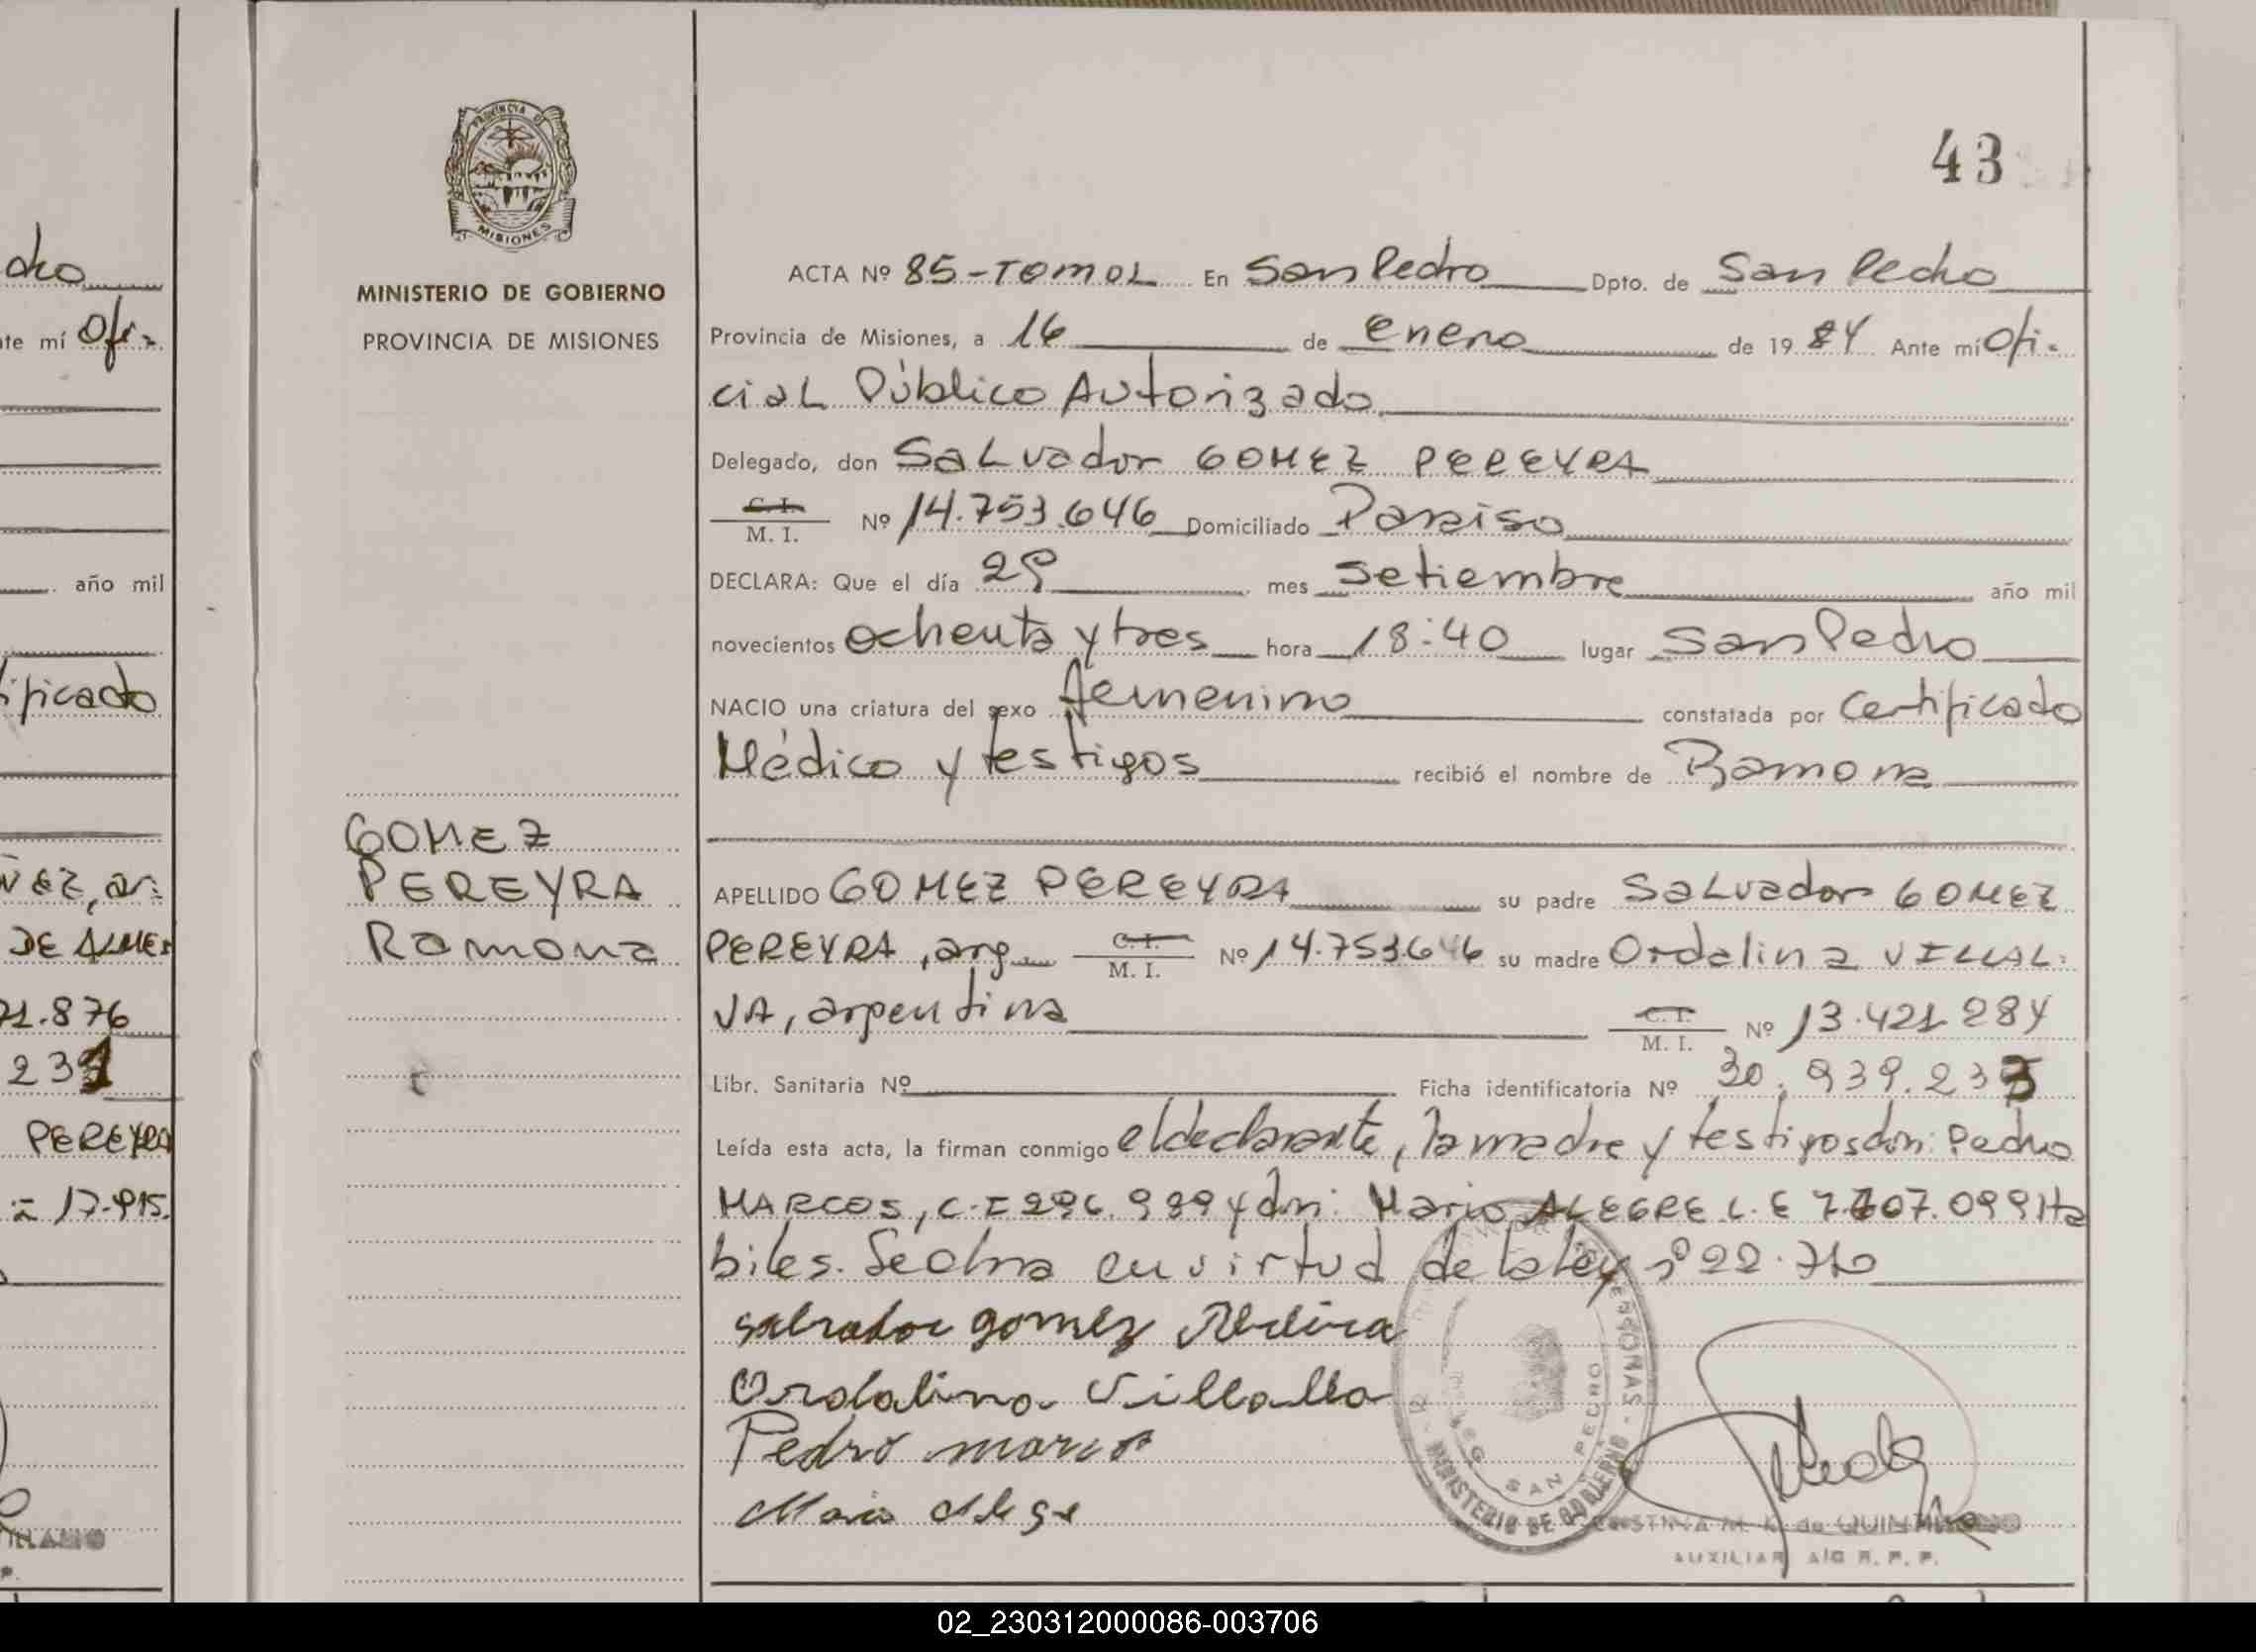 dro
te mí Ofi-
año mil
ificado
ÑEZ, ar:
DE ALMEI
71.876
231
PEREYRA
17.915.
PROVINCIA DE
MISIONES
MINISTERIO DE GOBIERNO
PROVINCIA DE MISIONES
GOMEZ
PEREYRA
Ramona
43
ACTA Nº 85-TOMOI En San Pedro Dpto. de San Pedro
Provincia de Misiones, a 16 de enero de 1984 Ante mí Ofi-
cial Público Autorizado
Delegado, don Salvador GOMEZ PEREYRA
C. I. M. I. Nº 14.753.646 Domiciliado Paraiso
DECLARA: Que el día 29 mes Setiembre año mil
novecientos ochenta y tres hora 18:40 lugar San Pedro
NACIO una criatura del sexo femenino constatada por Certificado
Médico y testigos recibió el nombre de Ramona
APELLIDO GOMEZ PEREYRA su padre Salvador GOMEZ
PEREYRA, arg C. I. M. I. Nº 14.753.646 su madre Ordalina VILLAL-
VA, argentina C. I. M. I. Nº 13.421.284
Libr. Sanitaria Nº Ficha identificatoria Nº 30.939.233
Leída esta acta, la firman conmigo el declarante, la madre y testigos don: Pedro
MARCOS, C.I 296.989 y don: Mario ALEGRE L.E 7.707.099 Ha
biles. Se labra en virtud de la ley nº 22.710
Salvador gomez Pereira
Ordalina Villalba
Pedro marcos
Mario Alegre
PERSONAS - MINISTERIO DE GOBIERNO
REG SAN PEDRO
CRISTINA M. K. de QUINTILLANO
AUXILIAR A/C R. P. P.
02_230312000086-003706